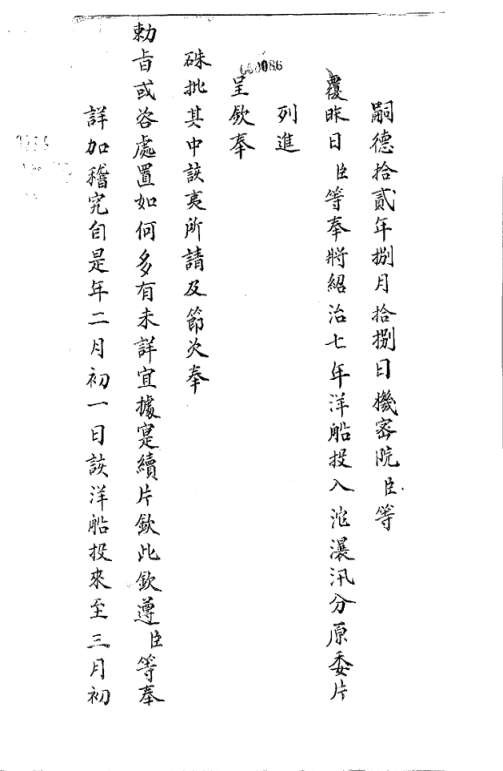 嗣德拾貳年捌月拾捌日機密院臣等
覆昨日臣等奉將紹治七年洋船投入沱㶞汛分原委片
列進
呈欽奉
硃批其中該夷所請及節次奉
勅旨或咨處置如何多有未詳宜據寔續片欽此欽遵臣等奉
詳加稽究自是年二月初一日該洋船投來至三月初